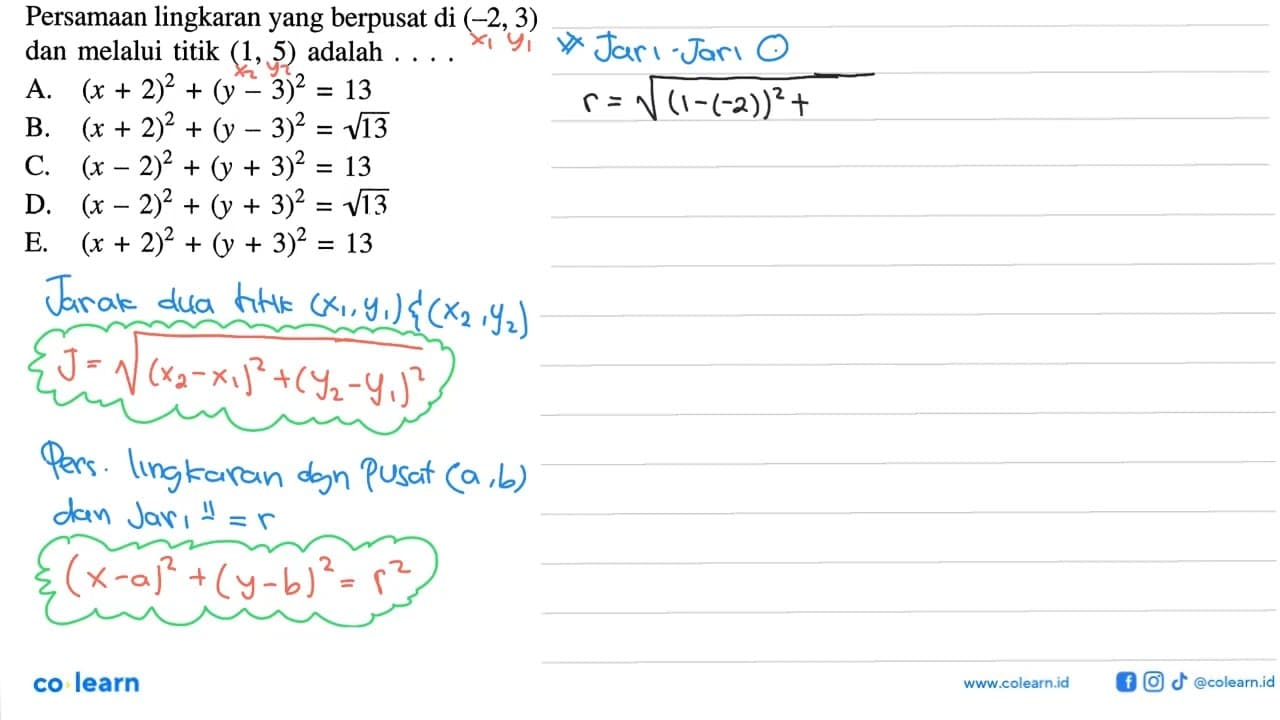 Persamaan lingkaran yang berpusat di (–2, 3)
x₁ y₁
dan melalui titik (1, 5) adalah . . . .
x₂ y₂
A. (x + 2)² + (y – 3)² = 13
B. (x + 2)² + (y – 3)² = √13
C. (x – 2)² + (y + 3)² = 13
D. (x – 2)² + (y + 3)² = √13
E. (x + 2)² + (y + 3)² = 13
Jarak dua titik (x₁, y₁) & (x₂, y₂)
J = √(x₂-x₁)² + (y₂-y₁)²
Pers. lingkaran dgn Pusat (a, b)
dan Jari" = r
(x-a)² + (y-b)² = r²
Jari-Jari
r = √(1-(-2))² +
co learn
www.colearn.id
@colearn.id